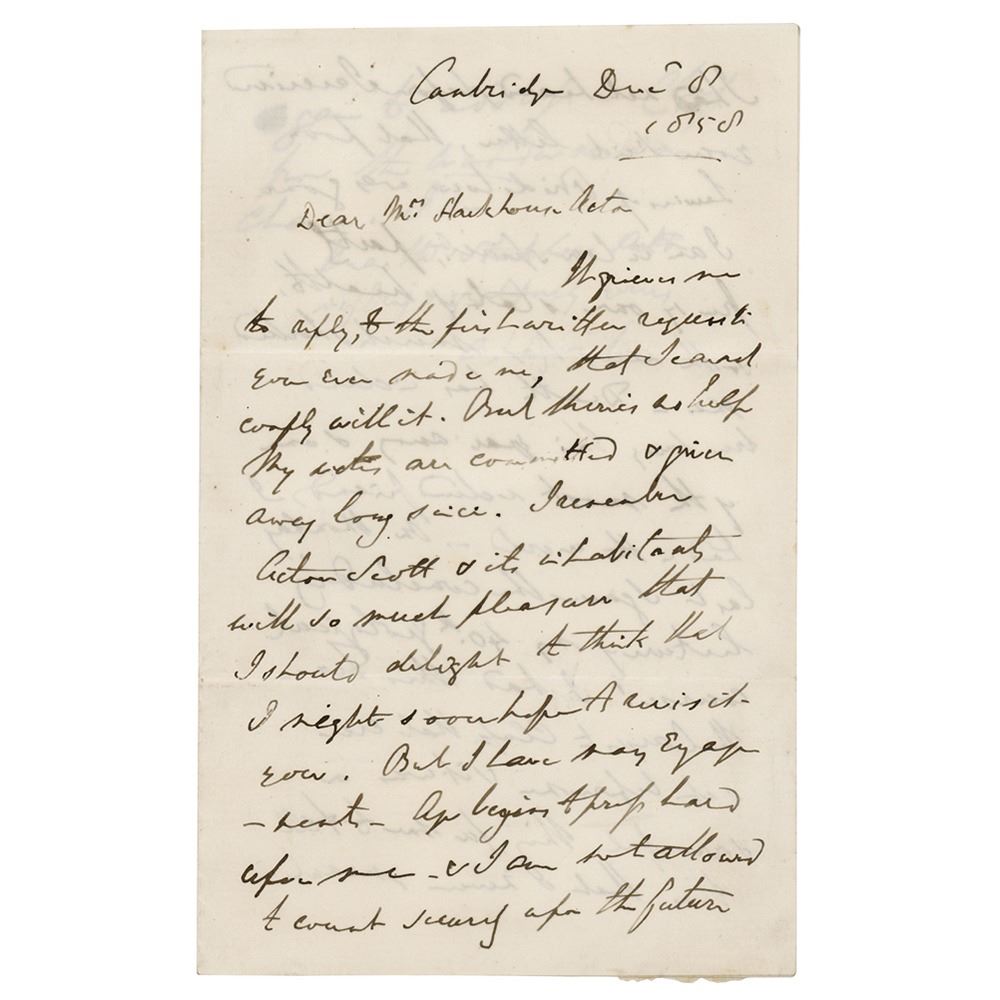 Cambridge Decr 8
1858
Dear Mrs Stackhouse Acton
It grieves me
to reply, to the first written request
you ever made me, that I cannot
comply with it. But there is no help
My votes are committed & given
away long since. I remember
Acton Scott & its inhabitants
with so much pleasure that
I should delight to think that
I might soon hope to revisit
you. But I have many Engage
-ments - Age begins to press hard
upon me - & I am not allowed
to count securely upon the future